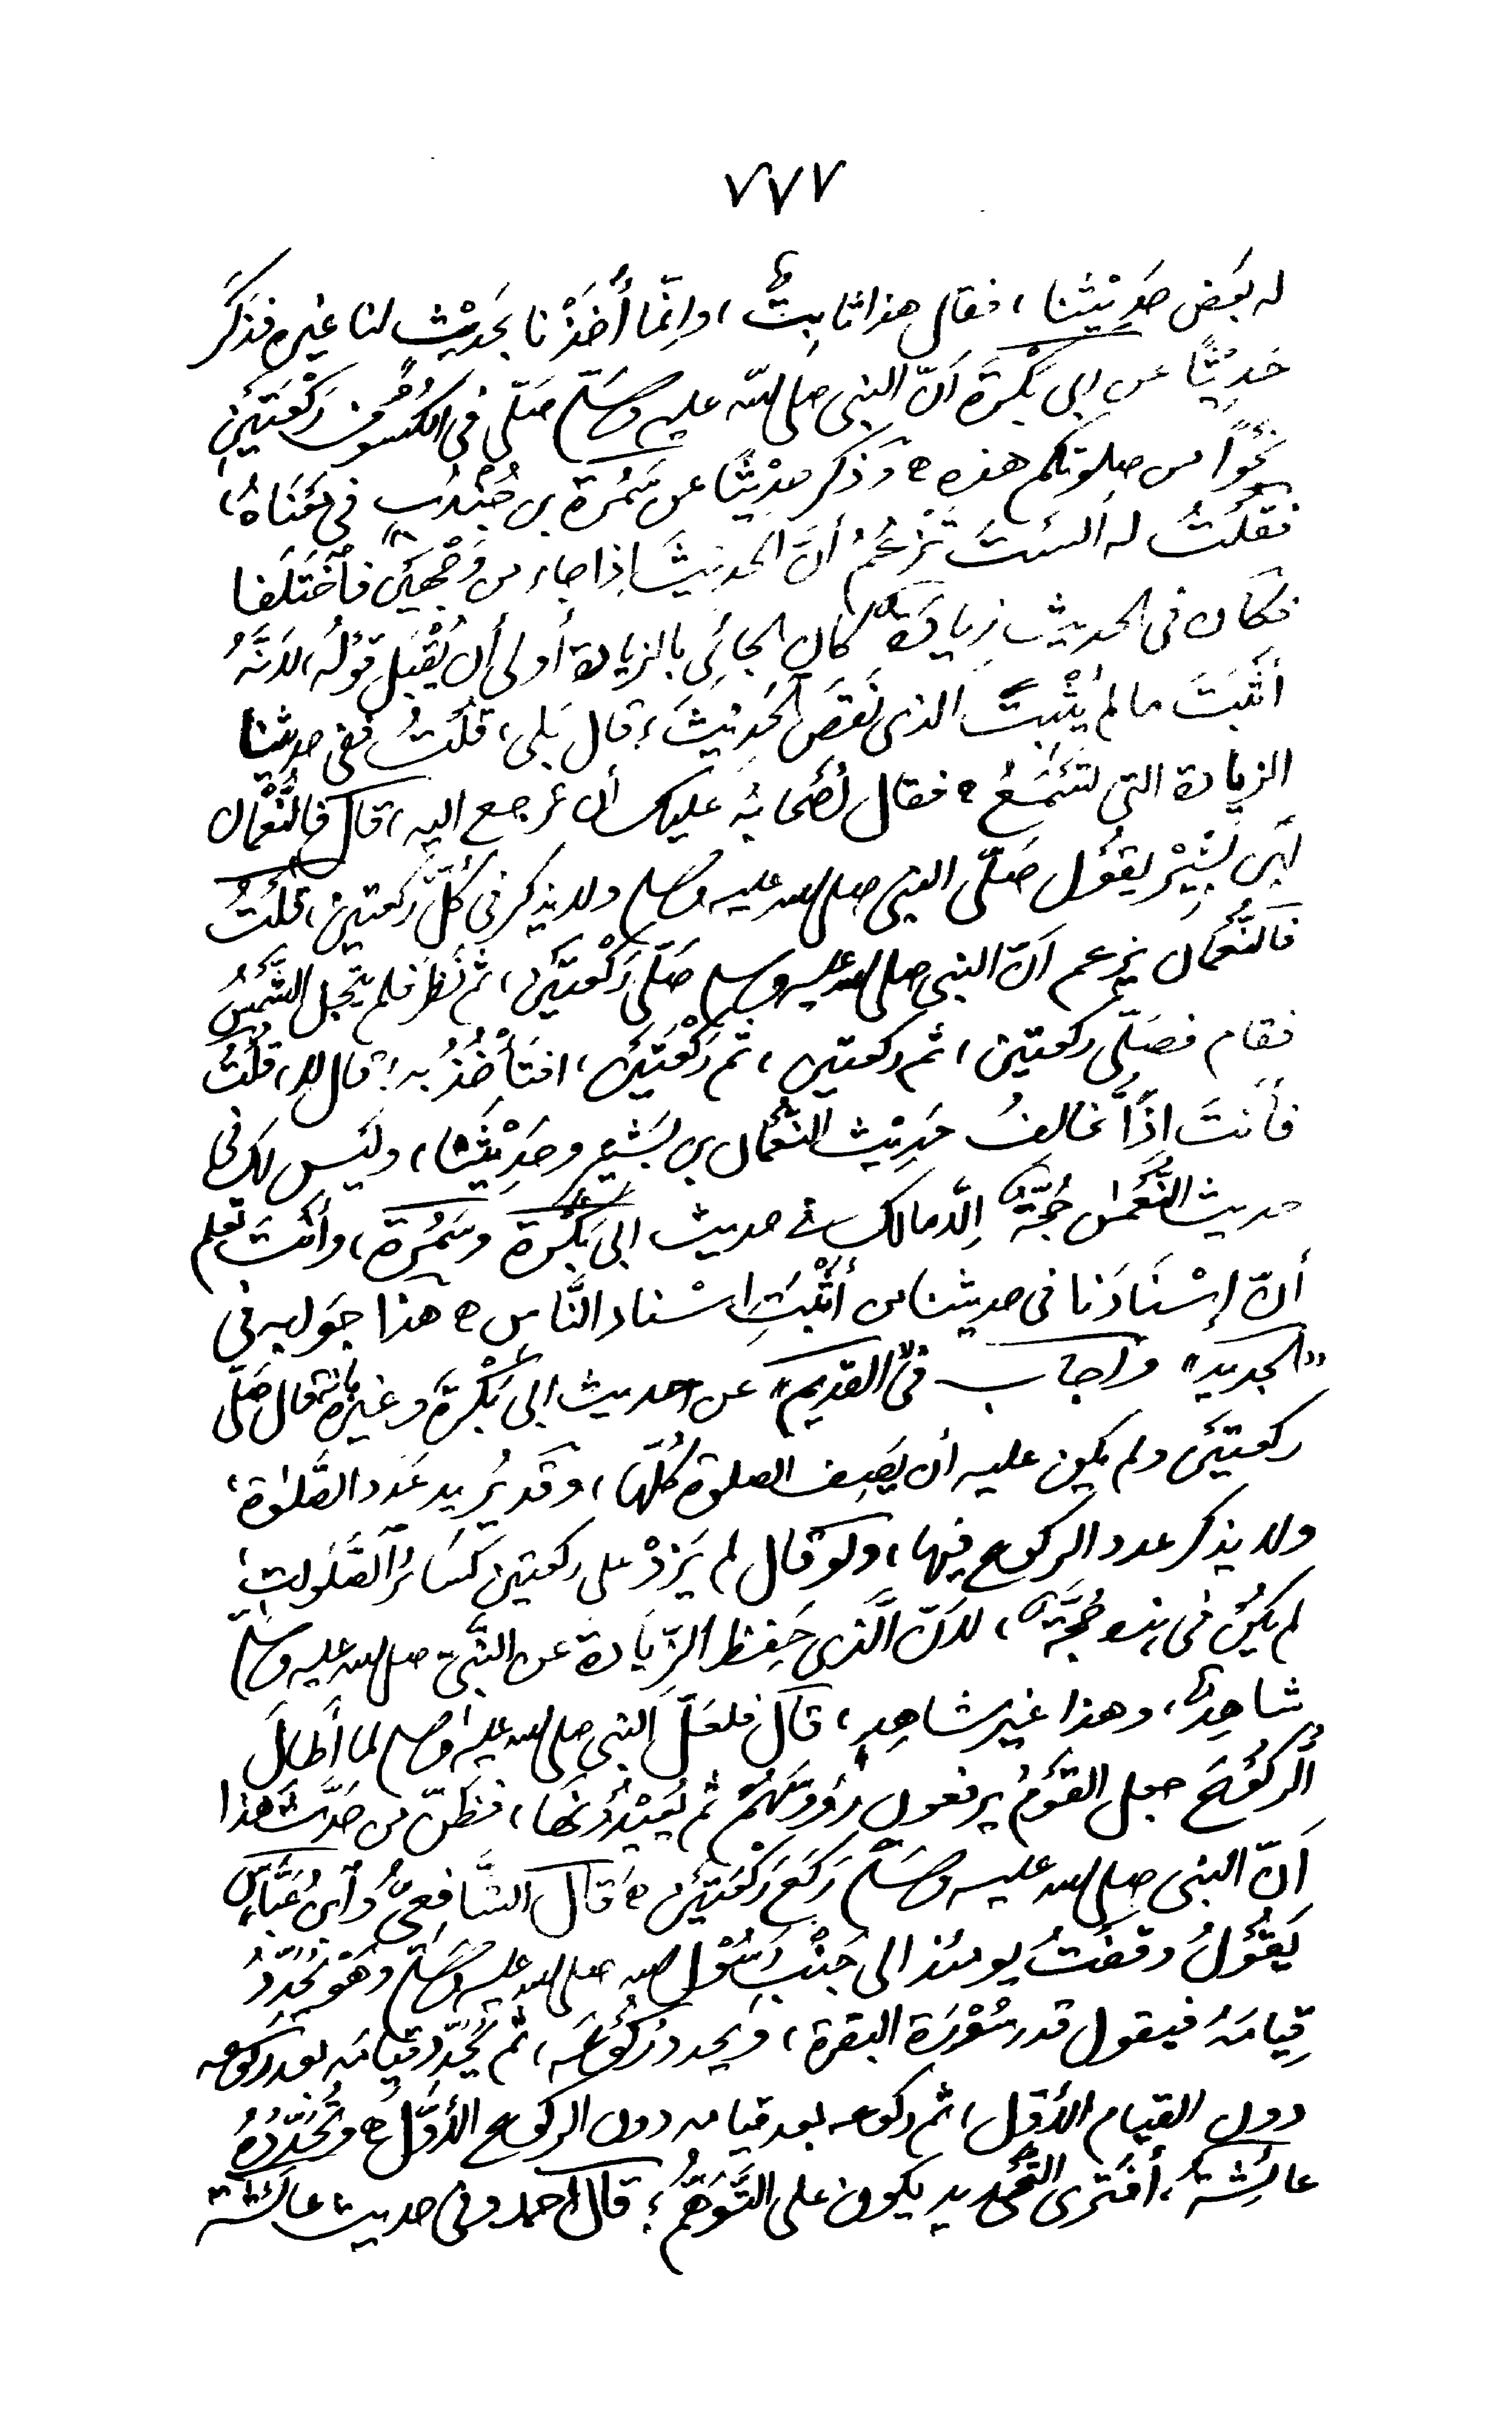 ٧٧٧
له بَعْض حَدِيْثنا، فقال هذا ثابِتٌ، وانّما أَخَذْنا بحَدِيْثٍ لنا غيره فذَكَرَ
حَدِيْثًا عن ابى بَكْرَةَ اَنّ النبى صلى الله عليه وسلم صَلّى فى الكسُوْف رَكْعَتَيْنِ
نَحْوًا من صلوتكم هذه ه وَذكر حدِيْثًا عن سَمُرَة بن جُنْدُبٍ فى مَعْنَاهُ،
فقُلْتُ له اَلَسْتَ تَزْعُمُ أنَّ الحَدِيْثَ اِذا جاء من وَجْهَيْن فَاخْتَلَفا
فكان فى الحديث زِيادَةٌ كان الجائِى بالزيادة أولى أن يُقْبَل قوْلُه لانَّهُ
أثْبَتَ ما لم يُثْبِتْ الذى نَقَصَ الحَدِيْثَ، قال بَلى، قُلْتُ ففى حديثنا
الزيادة التى تَسْمَعُ ه فقال أصْحَابُه عليك أن ترجع اليه، قال فالنُّعْمان
ابْن بَشِيْر يقُوْل صَلّى النبى صلى الله عليه وسلم ولا يذكر فى كُلّ رَكعتين، قلْتُ
فالنُّعْمان يزعم اَنّ النبى صلى الله عليه وسلم صَلّى رَكْعتَيْن، ثم نَظَر فلم تنجل الشَّمْسُ
فقام فصَلّى ركعتين، ثم ركعتين، ثم رَكْعَتَيْن، افتَأْخُذُ به؟ قال لا، قلْتُ
فأنتَ اِذًا تخالِفُ حَدِيْث النّعْمان بن بَشير وحَدِيْثَنا، وليْس لك فى
حديث النُّعْمٰن حُجَّةٌ اِلّا مالك فى حديث ابى بَكْرَة وسَمُرَة، وأنْتَ تعلم
أنّ إسْنَادَنا فى حديثنا من أثْبَتِ اسْناد النَّاس ه هذا جوابه فى
"الجديد" وأجاب فى "القديم" عن حديث ابى بَكْرَة وغيره بانّه قال صَلّى
ركعتيْن ولم يكن عليه أن يَصِف الصلوة كُلّها، وقد يُريد عَدد الصَّلوٰة،
ولا يذكر عدد الركوع فيها، ولو قال لم يَزِدْ على ركعتين كسَائر الصَّلَواتِ،
لم يكُنْ فى هذه حُجَّةٌ، لانّ الَّذى حَفِظ الزّيَادة عن النَّبى صلى الله عليه وسلم
شاهِدٌ، وهذا غير شاهِدٍ، قال فلعَلّ النبى صلى الله عليه وسلم لما أَطالَ
الرُّكُوْعَ جعل القَوْمُ يرفعون رُؤوسَهُمْ ثم يُعِيْدُوْنَهَا، فظنّ من حَدَّثَ هذا
اَنّ النبى صلى الله عليه وسلم رَكَعَ رَكْعَتَيْن ه قال الشَّافعىُّ وابْنُ عَبَّاسٍ
يَقُوْلُ وقفْتُ يومئذ الى جَنْبِ رَسُوْل الله صلى الله عليه وسلم وَهُوَ يُحَدِّدُ
قِيامَهُ فيقول قدر سُوْرَة البقرة، وَيحدد رُكُوْعَه، ثم يُحَدِّدُ قيامَه بعد رَكوعه
دون القيام الأوّل، ثم ركوعه بعد قيامه دون الركوع الأوّل ه وتُحَدِّدُهُ
عائِشَةُ، أفترى التَّحْديد يكون على التَّوَهُّم؟ قال احمد وفى حديث عائشة